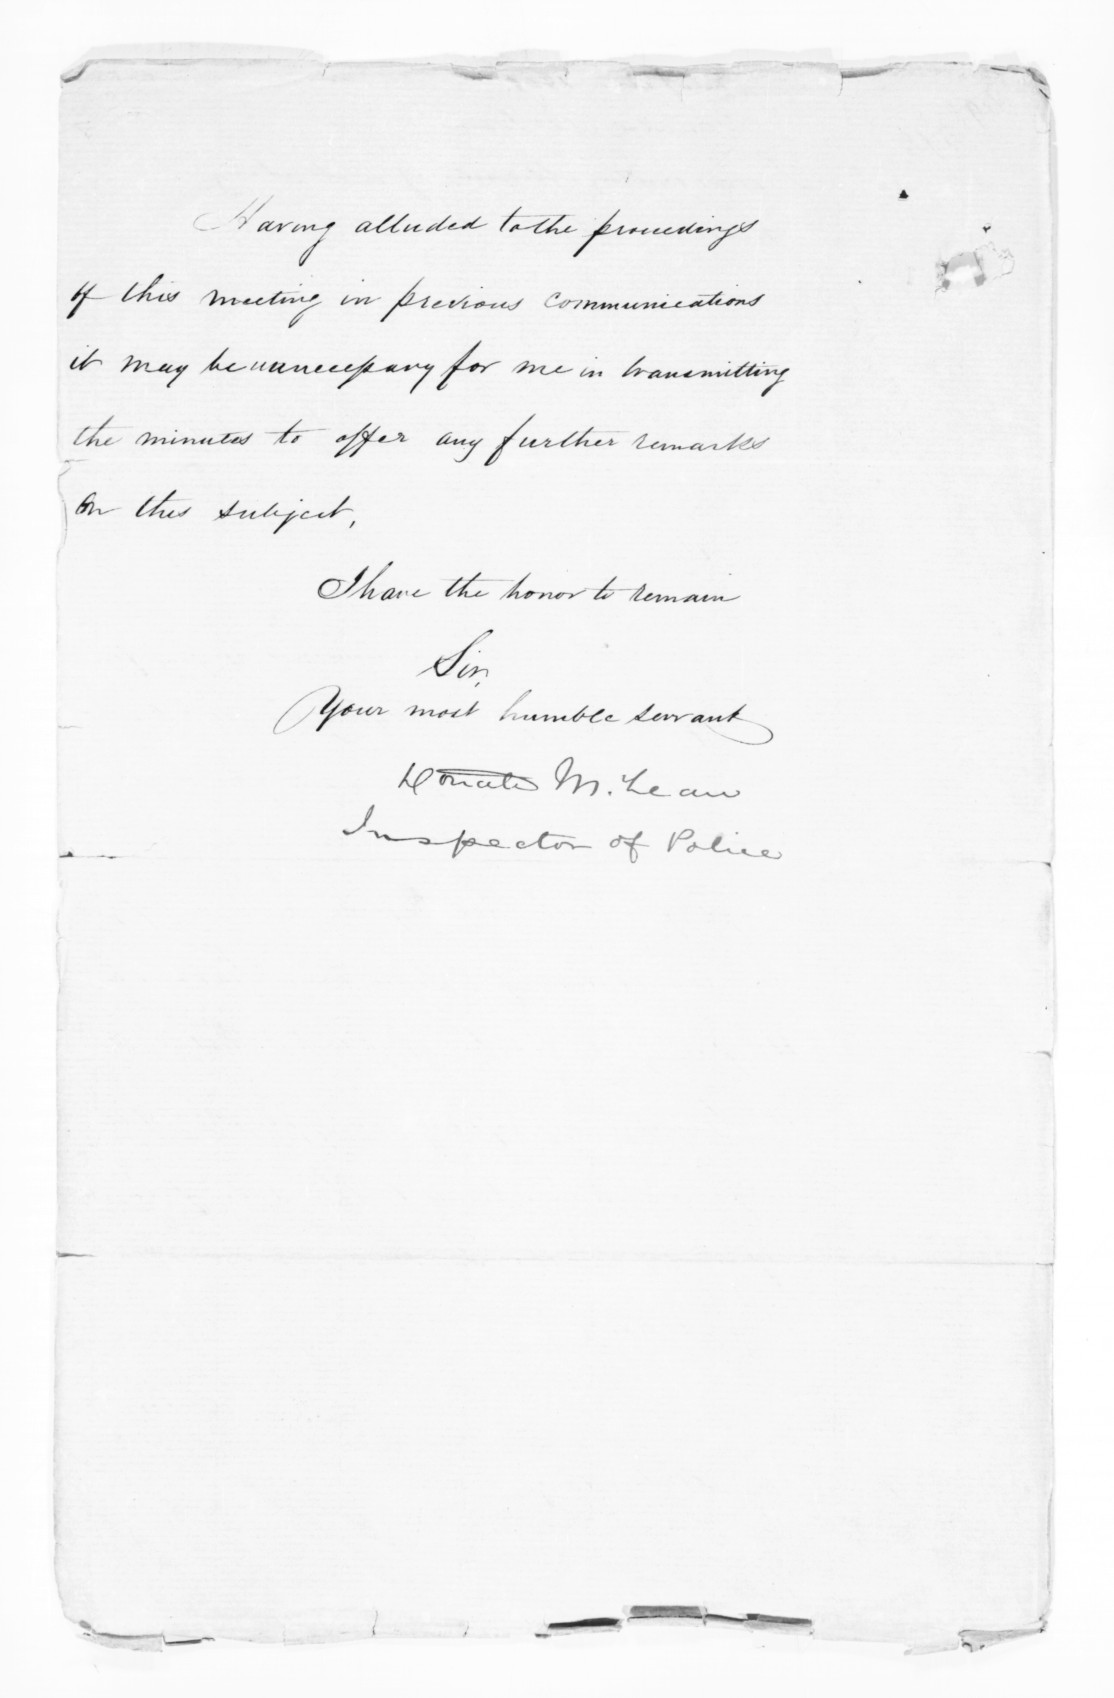 Having alluded to the proceedings
of this meeting in previous communications
it may be unnecessary for me in transmitting
the minutes to offer any further remarks
on this subject,
I have the honor to remain
Sir,
Your most humble servant
Donald McLean
Inspector of Police